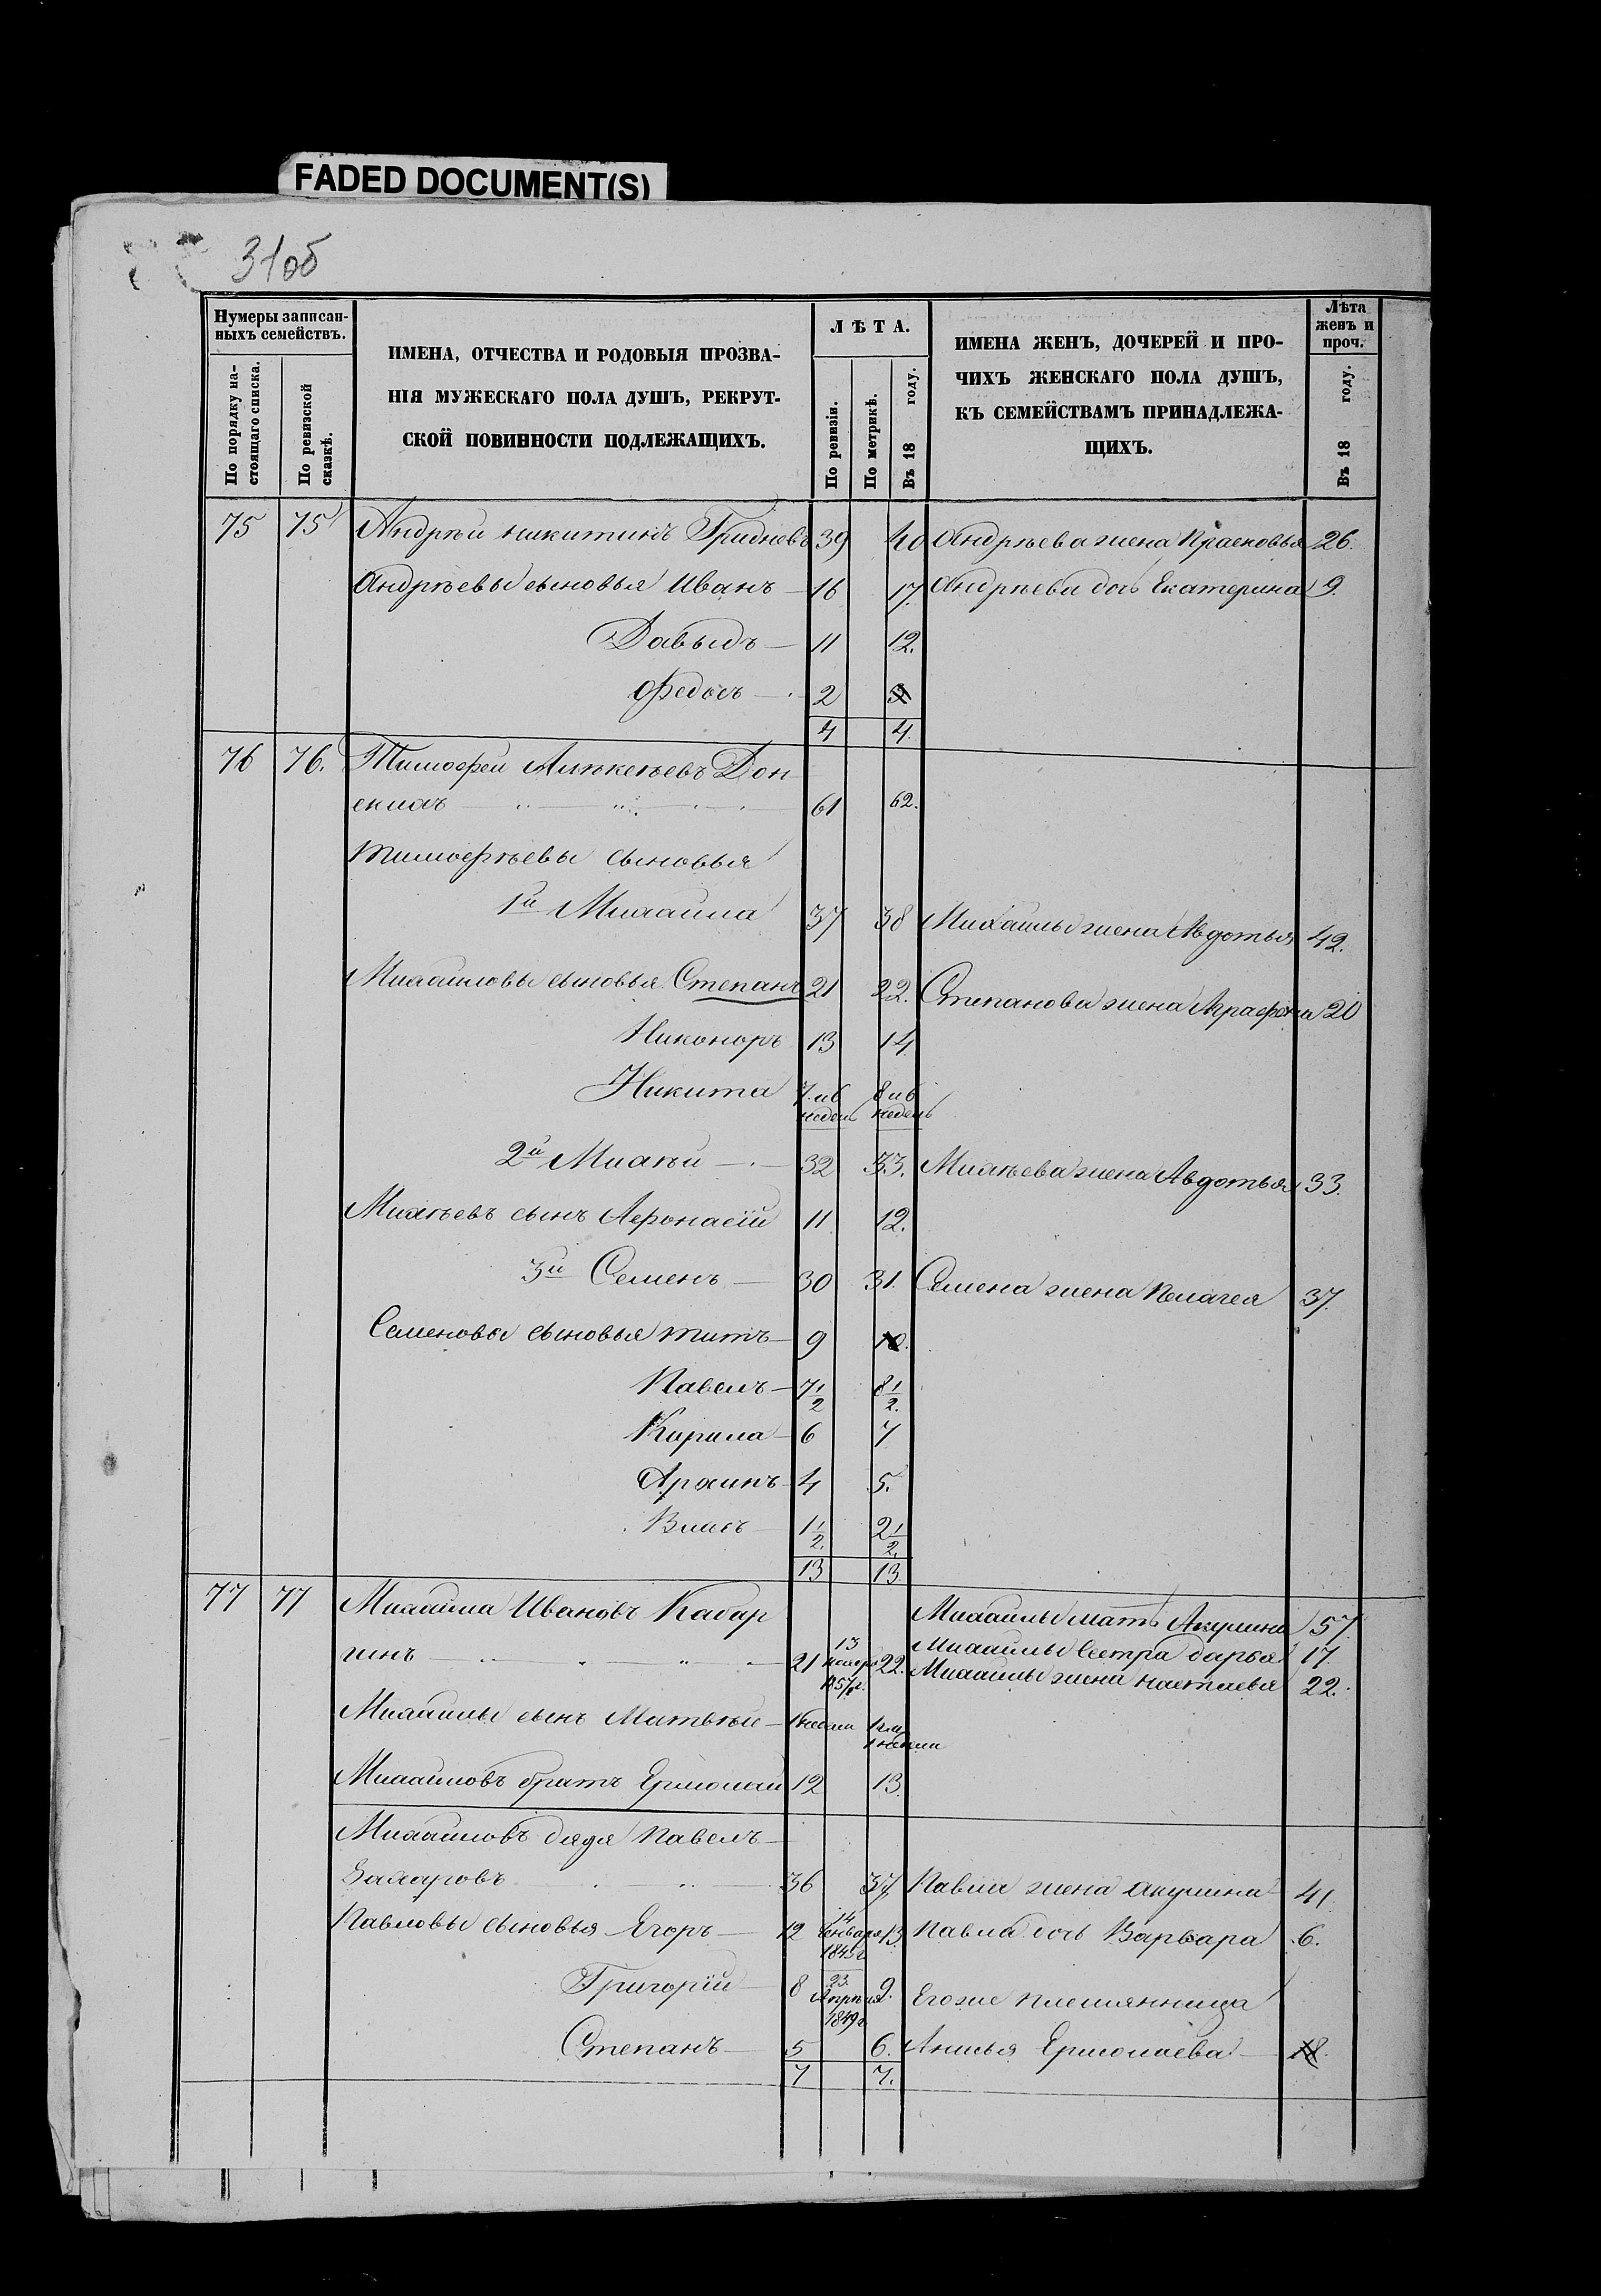 FADED DOCUMENT(S)
31об
Нумеры записан-
ныхъ семействъ.
По порядку на-
стоящаго списка.
По ревизской
сказкѣ.
ИМЕНА, ОТЧЕСТВА И РОДОВЫЯ ПРОЗВА-
НІЯ МУЖЕСКАГО ПОЛА ДУШЪ, РЕКРУТ-
СКОЙ ПОВИННОСТИ ПОДЛЕЖАЩИХЪ.
ЛѢТА.
По ревизіи.
По метрикѣ.
Въ 18 году.
ИМЕНА ЖЕНЪ, ДОЧЕРЕЙ И ПРО-
ЧИХЪ ЖЕНСКАГО ПОЛА ДУШЪ,
КЪ СЕМЕЙСТВАМЪ ПРИНАДЛЕЖА-
ЩИХЪ.
Лѣта
женъ и
проч.
Въ 18 году.
75 75 Андрѣй никитинъ Гридневъ 39 40 Андрѣева жена Прасковья 26.
Андрѣевы сыновья Иванъ 16 17. Андрѣева дочь Екатерина 9.
Давыдъ 11 12.
Федосъ 2
4 4.
76 76. Тимофей Дон
скихъ 61 62.
тимофѣевы сыновья
1й Михаила 37 38 Михаилы жена Авдотья 42.
Михаиловы сыновья Степанъ 21 22. Степанова жена Аграфена 20
Никоноръ 13 14
Никита 7. и 6 недель 8 и 6 недель
2й Михѣй 32 33. Михѣева жена Авдотья 33.
Михѣевъ сынъ Афонасій 11 12.
3й Семенъ 30 31. Семена жена Пелагея 37.
Семеновы сыновья титъ 9 10.
Павелъ 7 1/2 8 1/2.
Карила 6 7
Архипъ 4 5.
Власъ 1 1/2. 2 1/2.
13 13.
77 77 Михаила Ивановъ Кабар Михаилы мать Акулина 57.
гинъ 21 13 22. Михаилы Сестра дарья 17.
Михаилы жена настасья 22.
Михаилы сынъ Матвѣй
Михаиловъ братъ Ермолай 12 13.
Михаиловъ дядя Павелъ
Захаровъ 36 37. Павла жена Акулина 41.
Павловы сыновья Егоръ 12 14 Генваря 1845г 13 Павла дочь Варвара 6.
Григорій 8 23. Апрѣля 1849г. 9. Его же племянница
Степанъ 5 6. Анисья Ермолаева 18.
7 7.